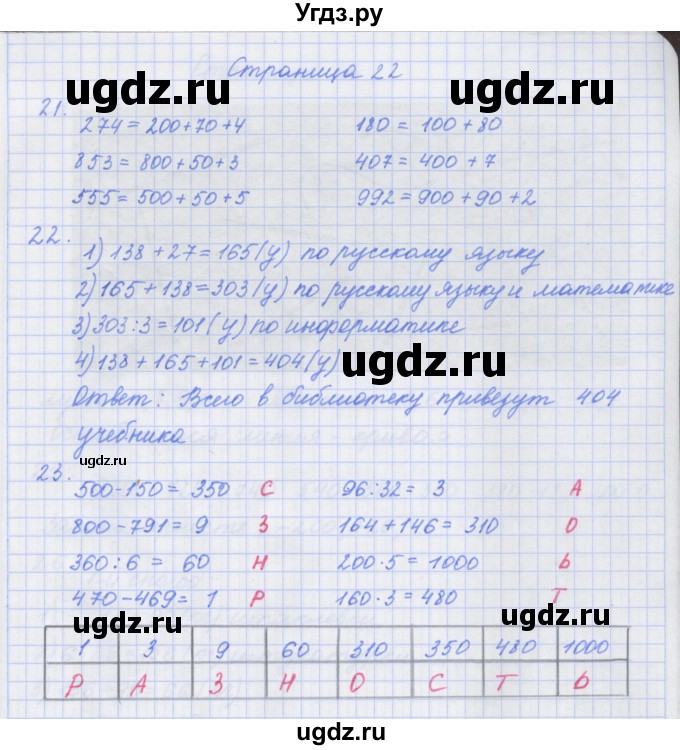 Угдз.ру
Страница 22
ugdz.ru ugdz.ru
21.
274 = 200+70+4 180 = 100 + 80
853 = 800+50+3 407 = 400 + 7
555 = 500+50+5 992 = 900 + 90 + 2
22.
1) 138 + 27 = 165 (у) по русскому языку
2) 165 + 138 = 303 (у) по русскому языку и математике
3) 303 : 3 = 101 (у) по информатике
4) 138 + 165 + 101 = 404 (у)
ugdz.ru ugdz.ru
Ответ: Всего в библиотеку привезут 404
учебника
ugdz.ru
23.
500-150 = 350 С 96:32 = 3 А
800 - 791 = 9 З 164 + 146 = 310 О
360 : 6 = 60 Н 200 · 5 = 1000 Ь
470 - 469 = 1 Р 160 · 3 = 480 Т
ugdz.ru ugdz.ru
1 3 9 60 310 350 480 1000
Р А З Н О С Т Ь
ugdz.ru